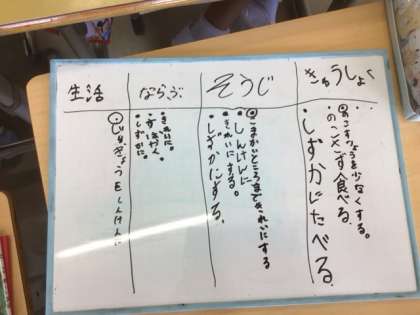 きゅうしょく
◎のこすりょうを少なくする。
・のこさず食べる
・しずかにたべる
そうじ
◎こまかいところまできれいにする
・しんけんに
・きれいにする。
・しずかにする。
ならぶ
・きれいに。
・しずかに。
生活
◎じゅぎょうをしんけんに